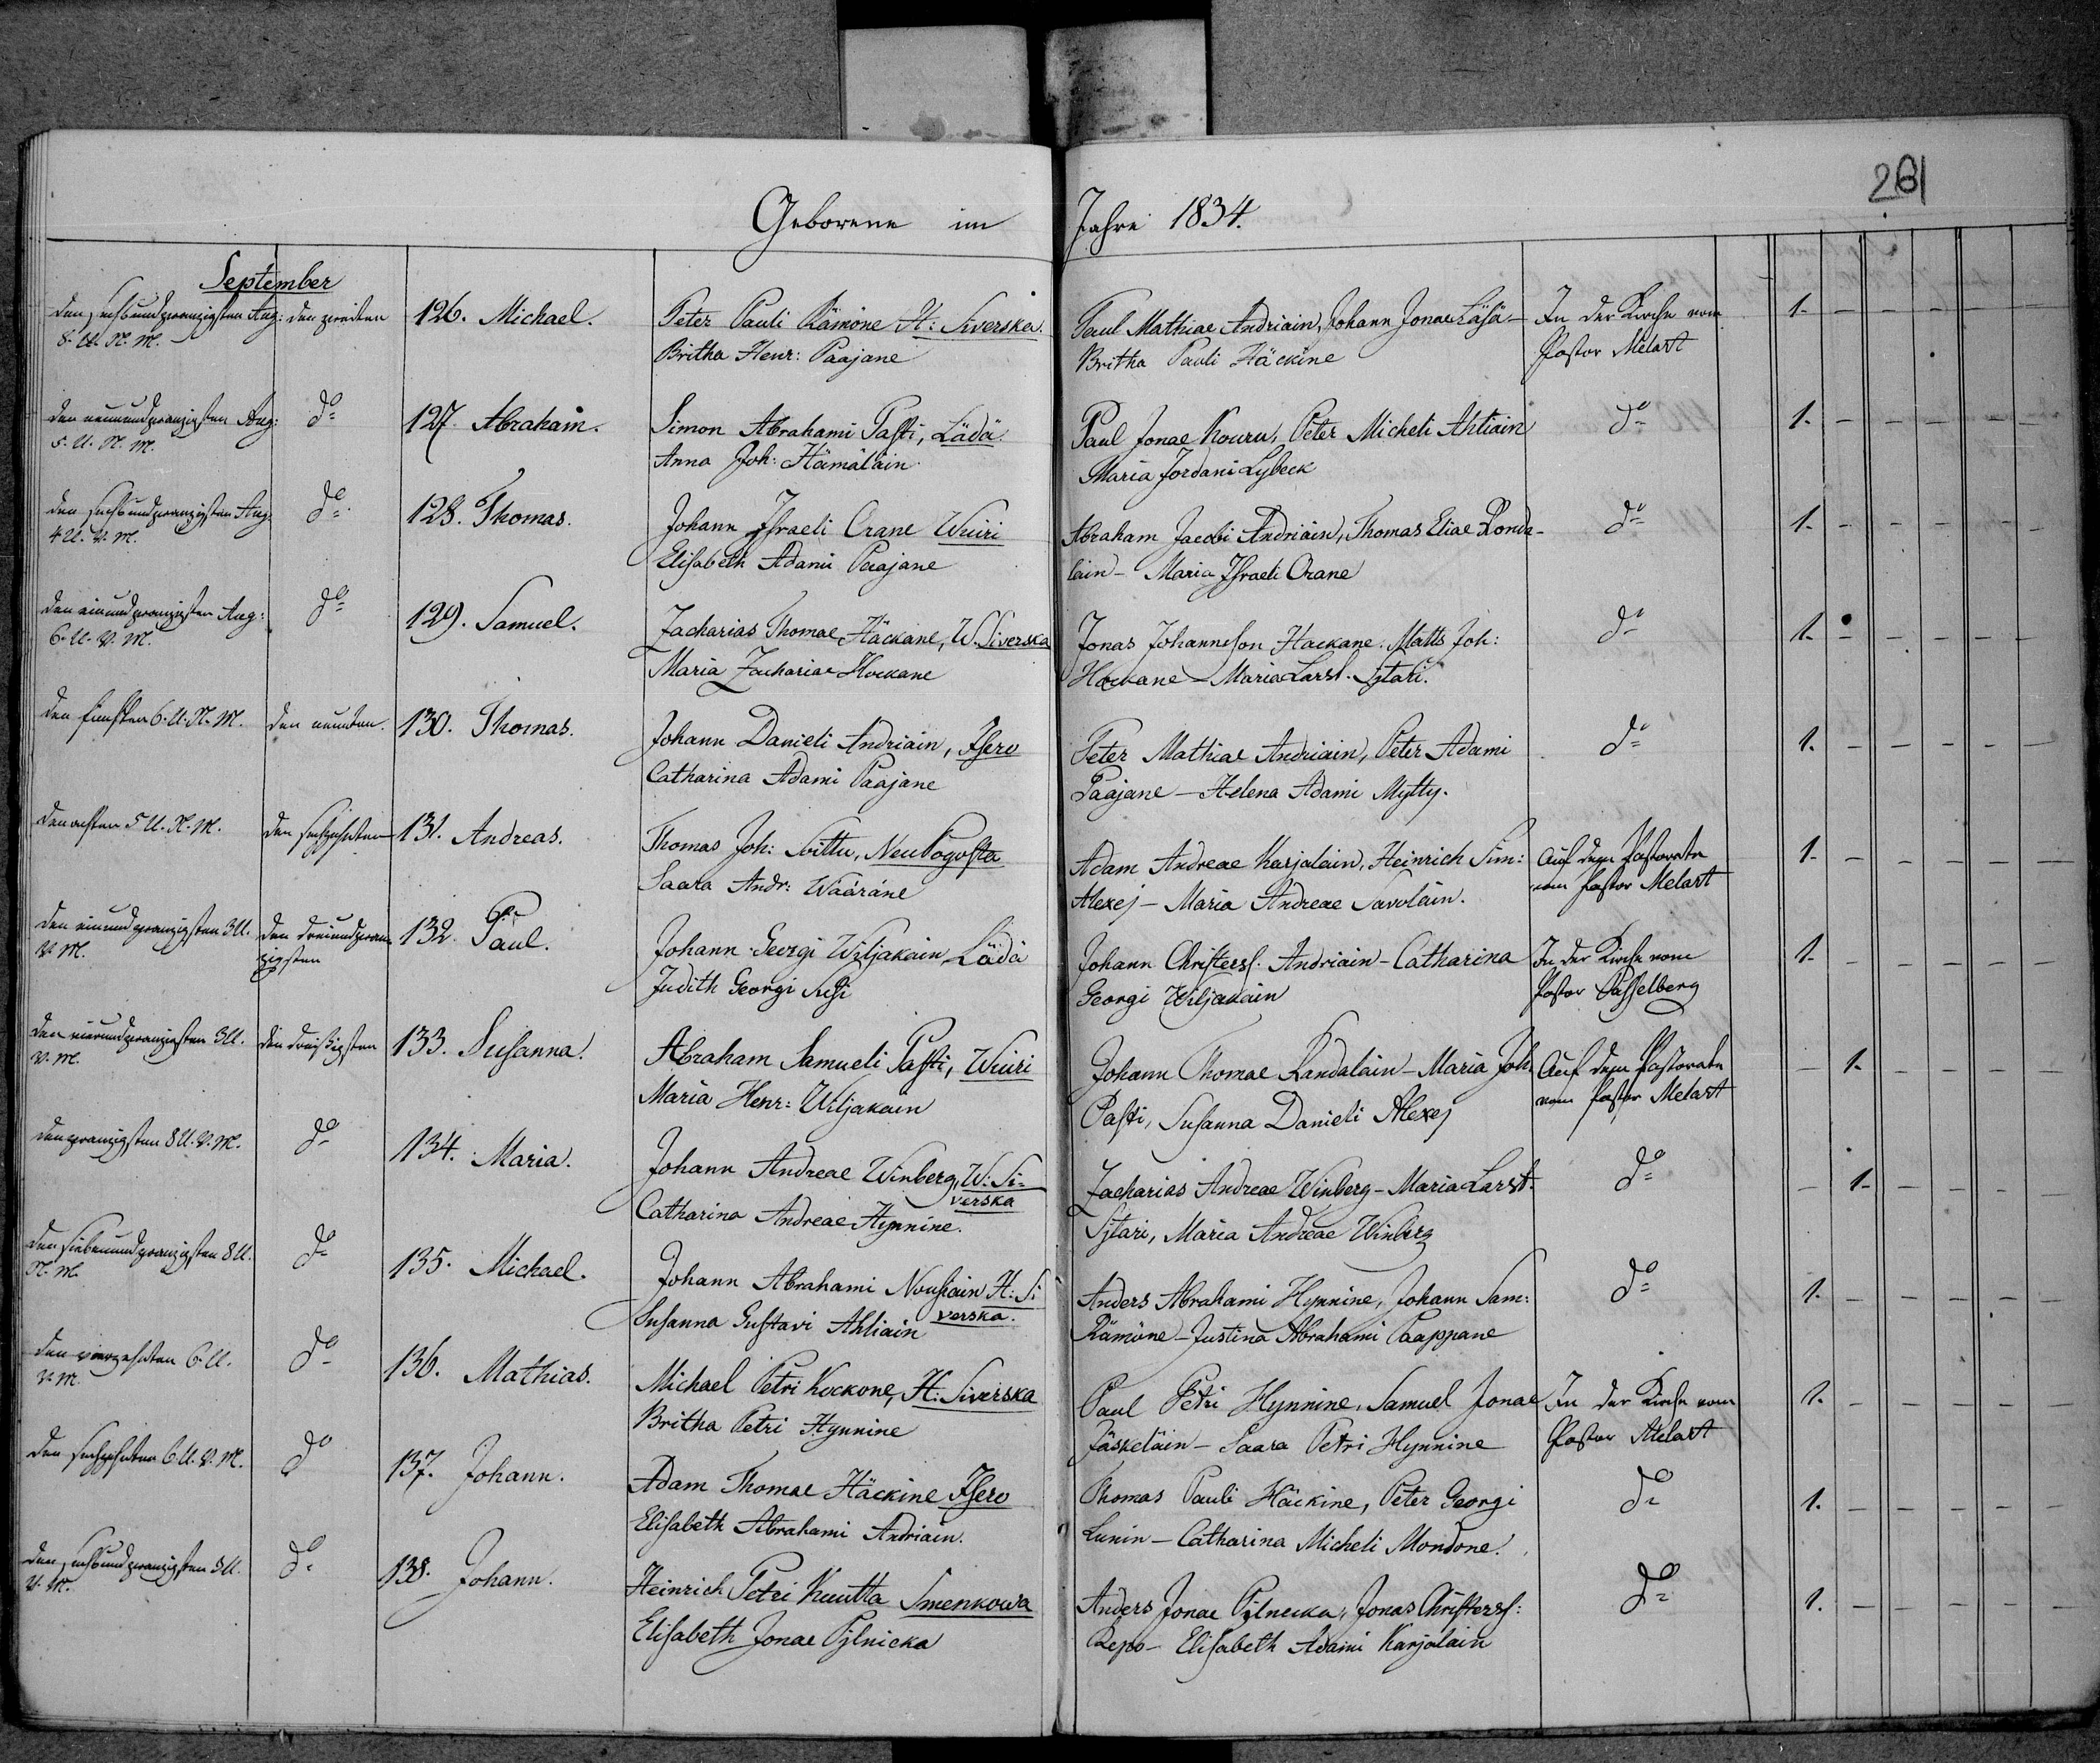 261
Geborene im Jahre 1834.
September
den sechsundzwanzigsten Aug: den zweiten 126. Michael. Peter Pauli Rämöne H: Siverska. Paul Mathiae Andriain, Johann Jonae Läsä- In der Kirche vom 1. - - - - -
8. U. N. M. Britha Henr: Paajane Britha Pauli Häckine Pastor Melart
den neunundzwanzigsten Aug: do 127. Abraham. Simon Abrahami Pasti, Lädä Paul Jonae Kouru, Peter Micheli Ahtiain do 1. - - - - -
5. U. N. M. Anna Joh: Hämäläin. Maria Jordani Lybeck
den sechsundzwanzigsten Aug. do 128. Thomas. Johann Israeli Orane Wiiri Abraham Jacobi Andriain, Thomas Eliae Ronda- do 1. - - - - -
4 U. V. M. Elisabeth Adami Paajane lain - Maria Israeli Orane
den einundzwanzigsten Aug: do 129. Samuel. Zacharias Thomae Häckane, W. Siverska Jonas Johannsson Hackane. Matts Joh: do 1. - - - - -
6. U. V. M. Maria Zachariae Hockane Hockane - Maria Larsd.
den fünften 6. U. N. M. den neunten. 130. Thomas. Johann Danieli Andriain, Isero Peter Mathiae Andriain, Peter Adami do 1. - - - - -
Catharina Adami Paajane Paajane - Helena Adami Mytty.
den achten 5 U. N. M. den sechzehnten 131. Andreas. Thomas Joh: Sittu, Neu Pogosta Adam Andreae Karjalain, Heinrich Sim: Auf dem Pastorate 1. - - - - -
Saara Andr: Wääräne Alexej - Maria Andreae Savolain. vom Pastor Melart
den einundzwanzigsten 3 U. den dreiundzwan- 132. Paul. Johann Georgi Wiljakain Lädä Johann Christerss. Andriain - Catharina In der Kirche vom 1. - - - - -
V. M. zigsten Judith Georgi Susi Georgi Wiljakain Pastor
den vierundzwanzigsten 3 U. den dreißigsten 133. Susanna. Abraham Samueli Pasti, Wiiri Johann Thomae Randalain - Maria Joh. Auf dem Pastorate - 1. - - - -
V. M. Maria Henr: Wiljakain Pasti, Susanna Danieli Alexej vom Pastor Melart
den zwanzigsten 8 U. V. M. do 134. Maria. Johann Andreae Winberg, W: Si- Zacharias Andreae Winberg - Maria Larsd. do - 1. - - - -
verska
Catharina Andreae Hynnine. Maria Andreae Winberg
den siebenundzwanzigsten 8 U. do 135. Michael. Johann Abrahami Nousiain H: Si Anders Abrahami Hynnine, Johann Sam: do 1. - - - - -
N. M. Susanna Gustavi Ahtiain verska. Rämöne - Justina Abrahami Paappane
den vierzehnten 6. U. do 136. Mathias. Michael Petri Kockone, H: Siverska Paul Petri Hynnine, Samuel Jonae In der Kirche vom 1. - - - - -
V. M. Britha Petri Hynnine Jäskeläin - Saara Petri Hynnine Pastor Melart
den sechzehnten 6 U. V. M. do 137. Johann. Adam Thomae Häckine Isero Thomas Pauli Häckine, Peter Georgi do 1. - - - - -
Elisabeth Abrahami Andriain. Lunin - Catharina Micheli Mondone.
den sechsundzwanzigsten 3 U. do 138. Johann. Heinrich Petri Kuutta Smenkowa Anders Jonae Pylnecka, Jonas Christerss: do 1. - - - - -
V. M. Elisabeth Jonae Pylnicka Repo - Elisabeth Adami Karjalain